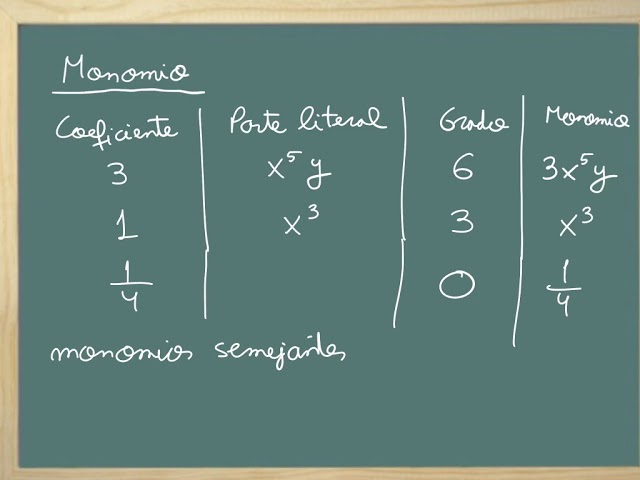 Monomio
Coeficiente Parte literal Grado Monomio
3 x⁵y 6 3x⁵y
1 x³ 3 x³
1/4 0 1/4
monomios semejantes